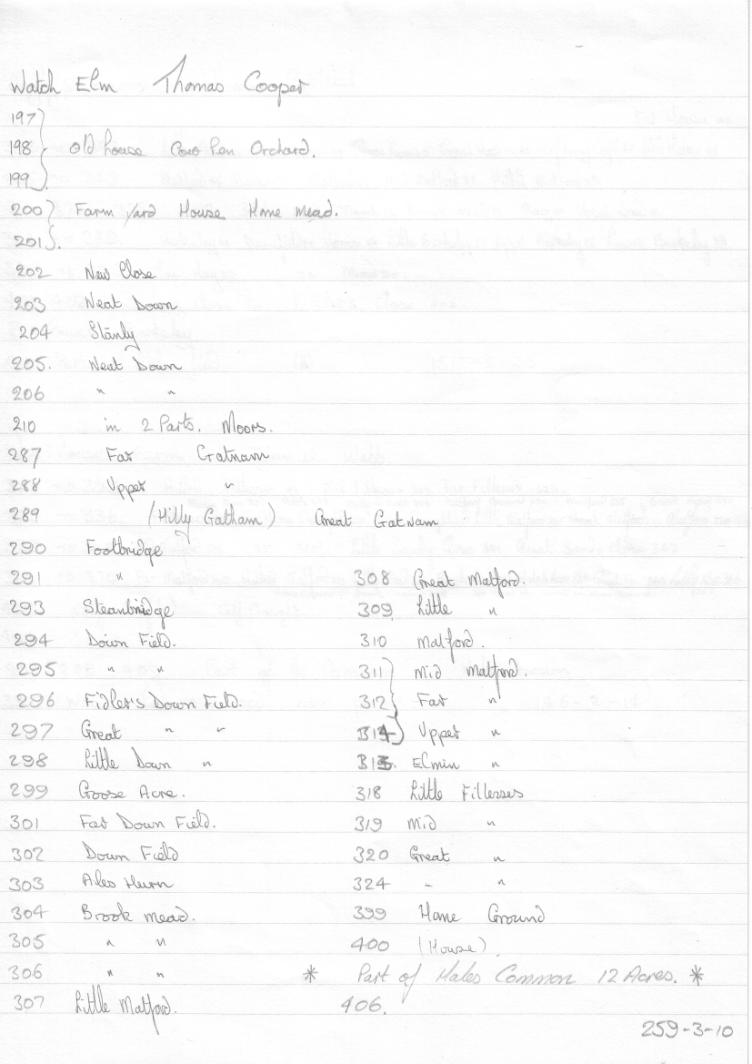 Watch Elm Thomas Cooper
197
198 old house Cow Pen Orchard.
199
200 Farm yard House Home Mead.
201
202 New Close
203 Neat Down
204 Stanly
205. Neat Down
206 " "
210 in 2 Parts. Moors.
287 Far Gatnam
288 Upper "
289 (Hilly Gatham) Great Gatnam
290 Footbridge
291 "
293 Steanbridge
294 Down Field.
295 " "
296 Fidler's Down Field.
297 Great " "
298 Little Down "
299 Goose Acre.
301 Far Down Field.
302 Down Field
303 Ales Hurn
304 Brook mead.
305 " "
306 " "
307 Little Matford.
308 Great Matford.
309 Little "
310 Matford.
311 Mid Matford.
312 Far "
314 Upper "
313. Elmin "
318 Little Fillesses
319 Mid "
320 Great "
324 - "
399 Home Ground
400 (House).
* Part of Hales Common 12 Acres. *
406.
259-3-10